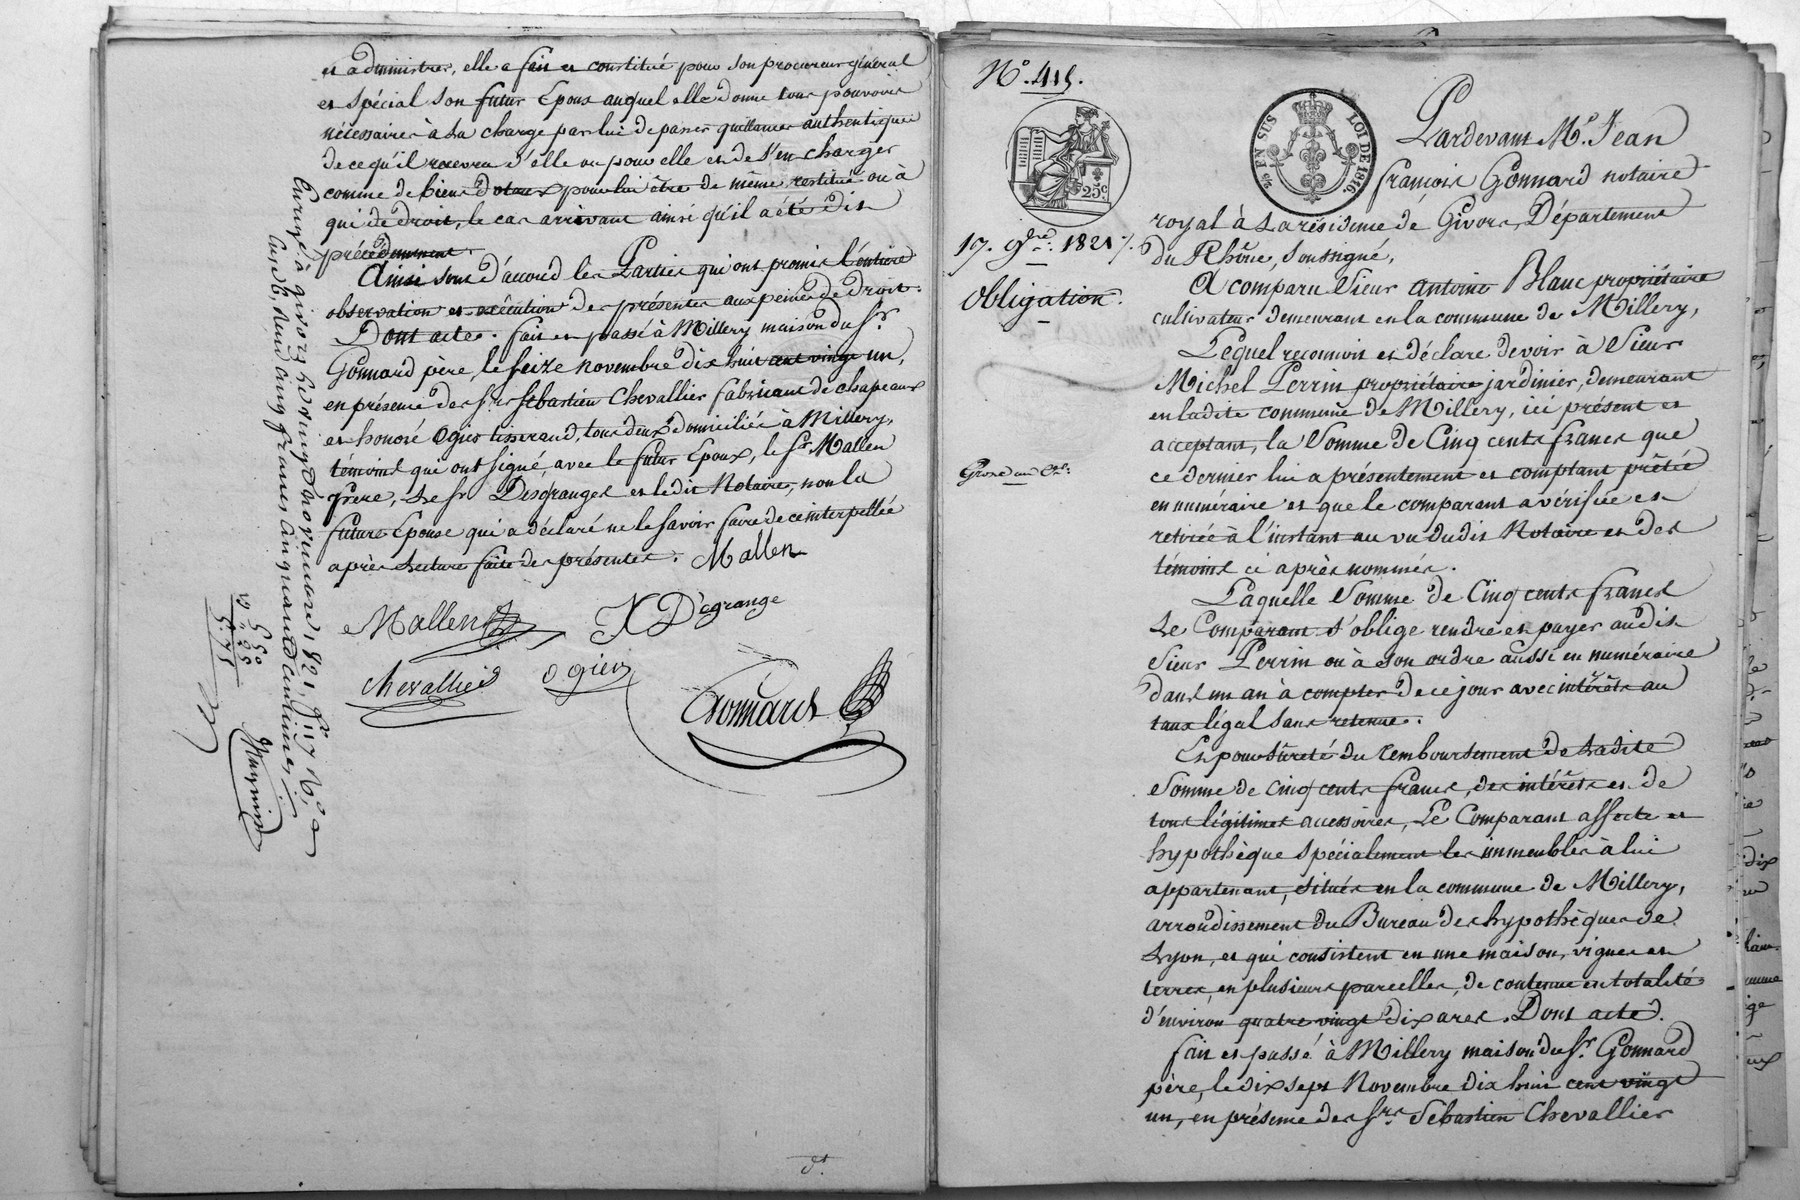 et administrer, elle a fait et constitué pour son procureur général
et spécial son futur Epoux auquel elle donne tous pouvoirs
nécessaires à la charge par lui de passer quittances authentiques
de ce qu'il recevra d'elle ou pour elle et de s'en charger
comme de biens dotaux pour lui être de même restitué ou à
qui de droit, le cas arrivant ainsi qu'il a été dit
précédemment.
Ainsi sont d'accord les Parties qui ont promis l'entière
observation et exécution des présentes aux peines de droit.
Dont acte. fait et passé à Millery maison du Sr.
Gonnard père, le seize novembre dix huit cent vingt un,
en présence des Srs Sébastien Chevallier fabricant de chapeaux
et honoré Ogier tisserand, tous deux domiciliés à Millery,
témoins qui ont signé, avec le futur Epoux, le Sr. Mallen
frère, le Sr Desgranges et ledit Notaire, non la
future Epouse qui a déclaré ne le savoir faire de ce interpellée
après lecture faite des présentes. Mallen
Mallen
X Dégrange
Chevallier
Ogier
Gonnard
Enregé à givors le vingt novembre 1821, fo. 17 Ro. a
cinq francs cinquante centimes
5.50
55
N°. 415.
25c
EN SUS
LOI DE 1816.
17. 9bre. 1821.
Obligation.
Pardevant Me. Jean
françois Gonnard notaire
royal à la résidence de Givors, Département
du Rhône, soussigné,
A comparu Sieur Antoine Blanc propriétaire
cultivateur demeurant en la commune de Millery,
Lequel reconnoit et déclare devoir à Sieur
Michel Perrin propriétaire jardinier, demeurant
en ladite commune de Millery, ici présent et
acceptant, la Somme de Cinq cents francs que
Grosse
ce dernier lui a présentement et comptant prêtée
en numéraire et que le comparant a vérifiée et
retirée à l'instant au vu dudit Notaire et des
témoins ci après nommés.
Laquelle Somme de Cinq cents francs
le Comparant s'oblige rendre et payer audit
Sieur Perrin ou à son ordre aussi en numéraire
dans un an à compter de ce jour avec intérêts au
taux légal sans retenue.
Et pour Sûreté du remboursement de ladite
Somme de Cinq cents francs, des intérêts et de
tous légitimes accessoires, le Comparant affecte et
hypothèque spécialement les immeubles à lui
appartenant, situés en la commune de Millery,
arrondissement du Bureau des hypothèques de
Lyon, et qui consistent en une maison, vignes et
terres, en plusieurs parcelles, de contenue en totalité
d'environ quatre vingt dix ares. Dont acte.
fait et passé à Millery maison du Sr. Gonnard
père, le dix sept Novembre dix huit cent vingt
un, en présence des Srs. Sébastien Chevallier